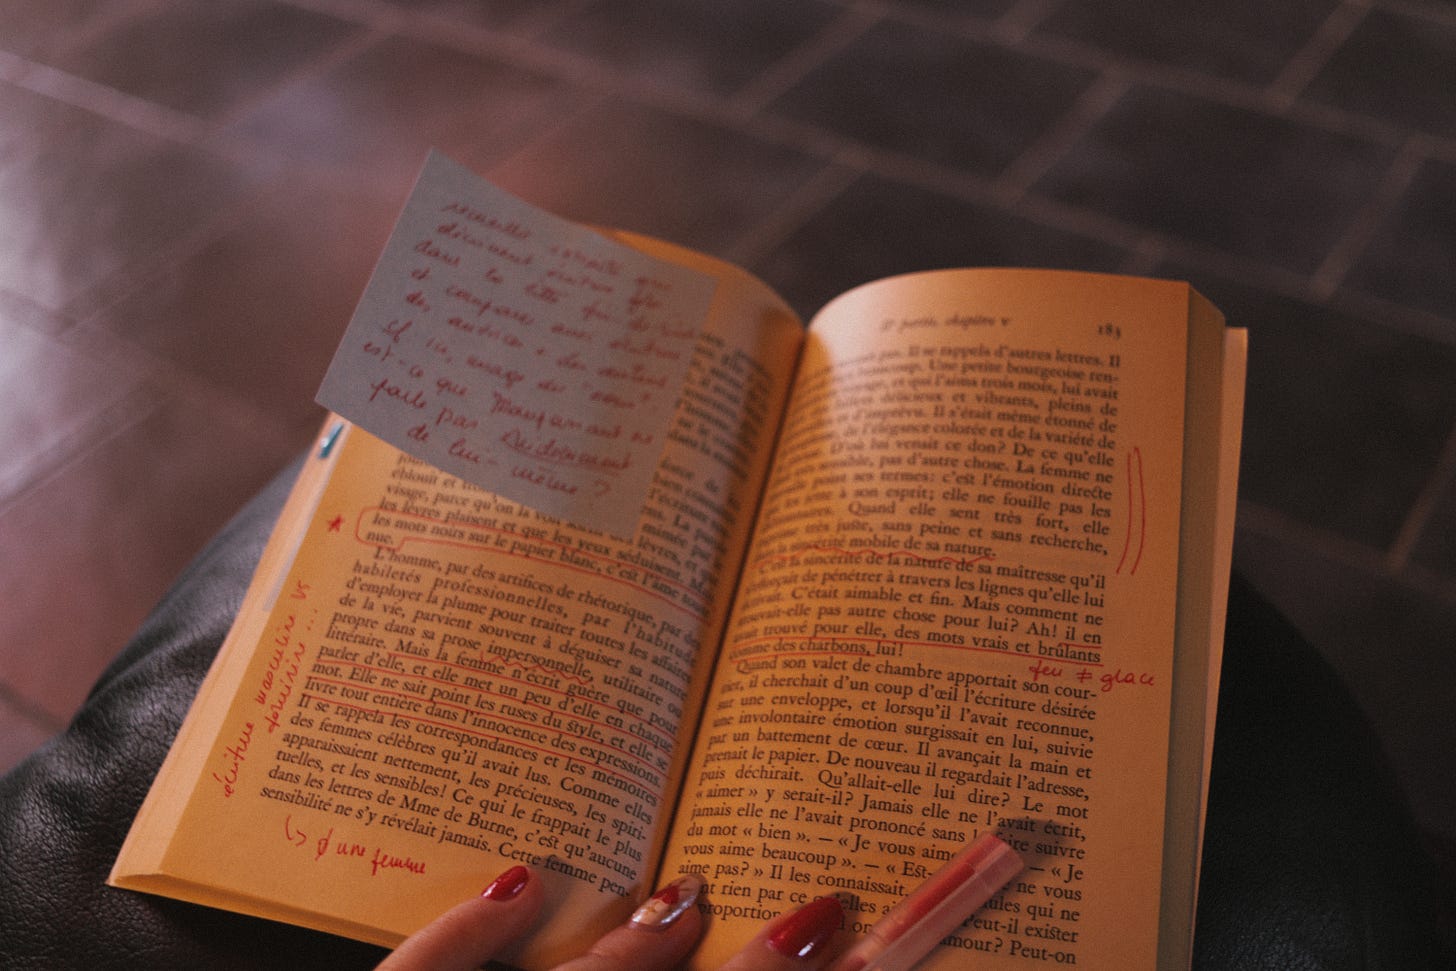 recueillir extraits qui
décrivent écriture
dans la lettre
et comparer aux
des
si ici, image du "cœur".
est-ce que Maupassant ne
parle pas
de lui-même ?
éblouit et
visage, parce qu'on la voit
les lèvres plaisent et que les yeux séduisent. Mais
les mots noirs sur le papier blanc, c'est l'âme toute
nue.
L'homme, par des artifices de rhétorique, par des
habiletés professionnelles, par l'habitude
d'employer la plume pour traiter toutes les affaires
de la vie, parvient souvent à déguiser sa nature
propre dans sa prose impersonnelle, utilitaire ou
littéraire. Mais la femme n'écrit guère que pour
parler d'elle, et elle met un peu d'elle en chaque
mot. Elle ne sait point les ruses du style, et elle se
livre tout entière dans l'innocence des expressions.
Il se rappela les correspondances et les mémoires
des femmes célèbres qu'il avait lus. Comme elles
apparaissaient nettement, les précieuses, les spiri-
tuelles, et les sensibles! Ce qui le frappait le plus
dans les lettres de Mme de Burne, c'est qu'aucune
sensibilité ne s'y révélait jamais. Cette femme pen-
écriture masculine vs
féminine ...
↳ ∅ une femme
chapitre V
183
pas. Il se rappela d'autres lettres. Il
beaucoup. Une petite bourgeoise ren-
voyage, et qui l'aima trois mois, lui avait
délicieux et vibrants, pleins de
d'imprévu. Il s'était même étonné de
de l'élégance colorée et de la variété de
D'où lui venait ce don? De ce qu'elle
sensible, pas d'autre chose. La femme ne
point ses termes: c'est l'émotion directe
à son esprit; elle ne fouille pas les
Quand elle sent très fort, elle
très juste, sans peine et sans recherche,
dans la sincérité mobile de sa nature.
C'est la sincérité de la nature de sa maîtresse qu'il
s'efforçait de pénétrer à travers les lignes qu'elle lui
écrivait. C'était aimable et fin. Mais comment ne
trouvait-elle pas autre chose pour lui? Ah! il en
avait trouvé pour elle, des mots vrais et brûlants
comme des charbons, lui!
feu ≠ glace
Quand son valet de chambre apportait son cour-
rier, il cherchait d'un coup d'œil l'écriture désirée
sur une enveloppe, et lorsqu'il l'avait reconnue,
une involontaire émotion surgissait en lui, suivie
par un battement de cœur. Il avançait la main et
prenait le papier. De nouveau il regardait l'adresse,
puis déchirait. Qu'allait-elle lui dire? Le mot
« aimer » y serait-il? Jamais elle ne l'avait écrit,
jamais elle ne l'avait prononcé sans le faire suivre
du mot « bien ». — « Je vous aime — « Je
vous aime beaucoup ». — « Est- ne vous
aime pas? » Il les connaissait, qui ne
rien par ce qu'elles Peut-il exister
proportion amour? Peut-on